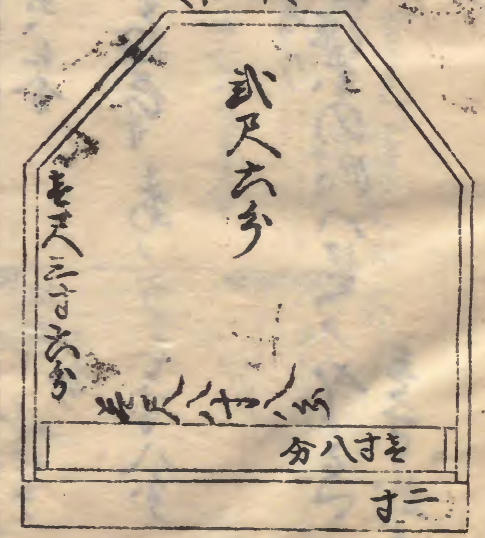 弐尺六分
壱尺三寸六分
壱寸八分
二寸